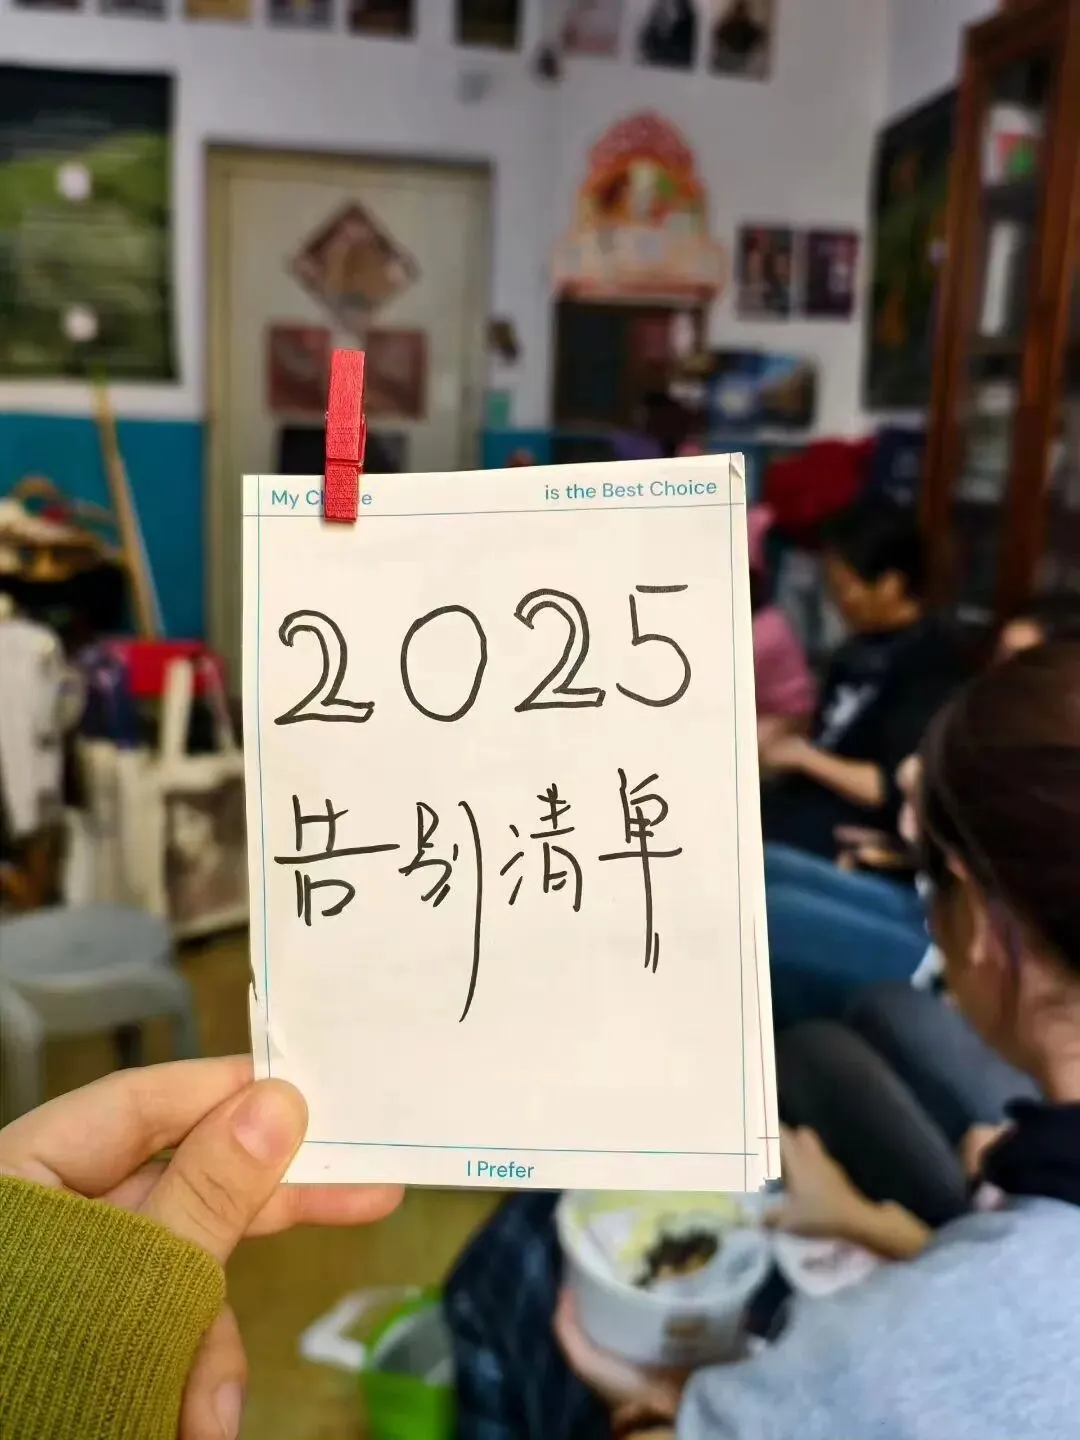 My Ch e is the Best Choice
2025
告别清单
I Prefer